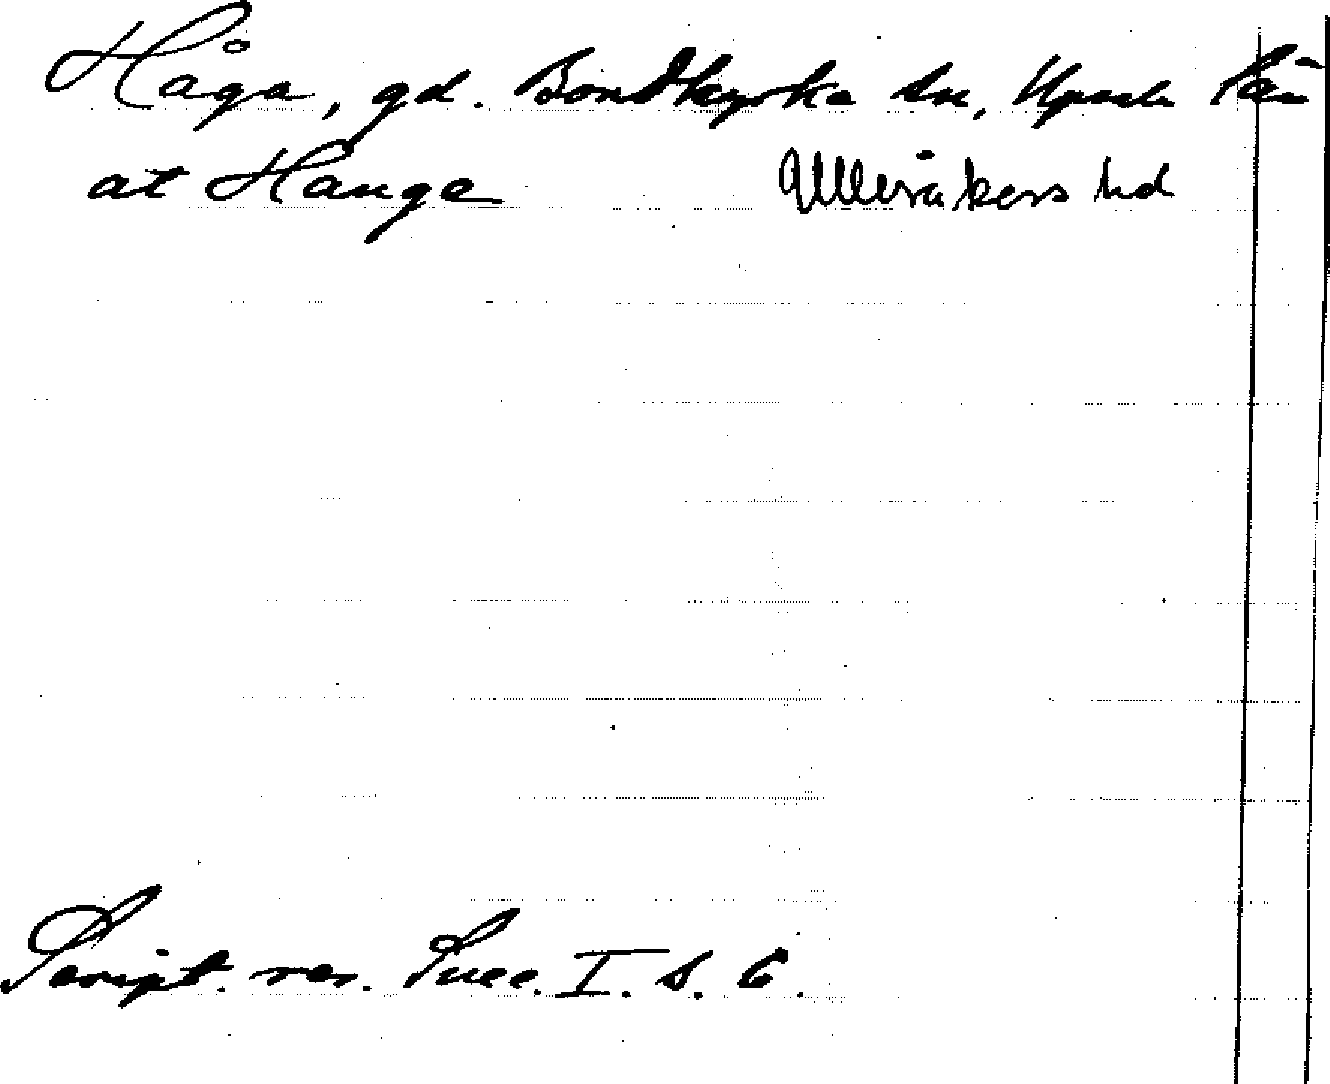 Håga, gd. Bondkyrko sn, Upsala län
at Hauge Ulleråkers hd
Script. rer. Suec. I. s. 6.